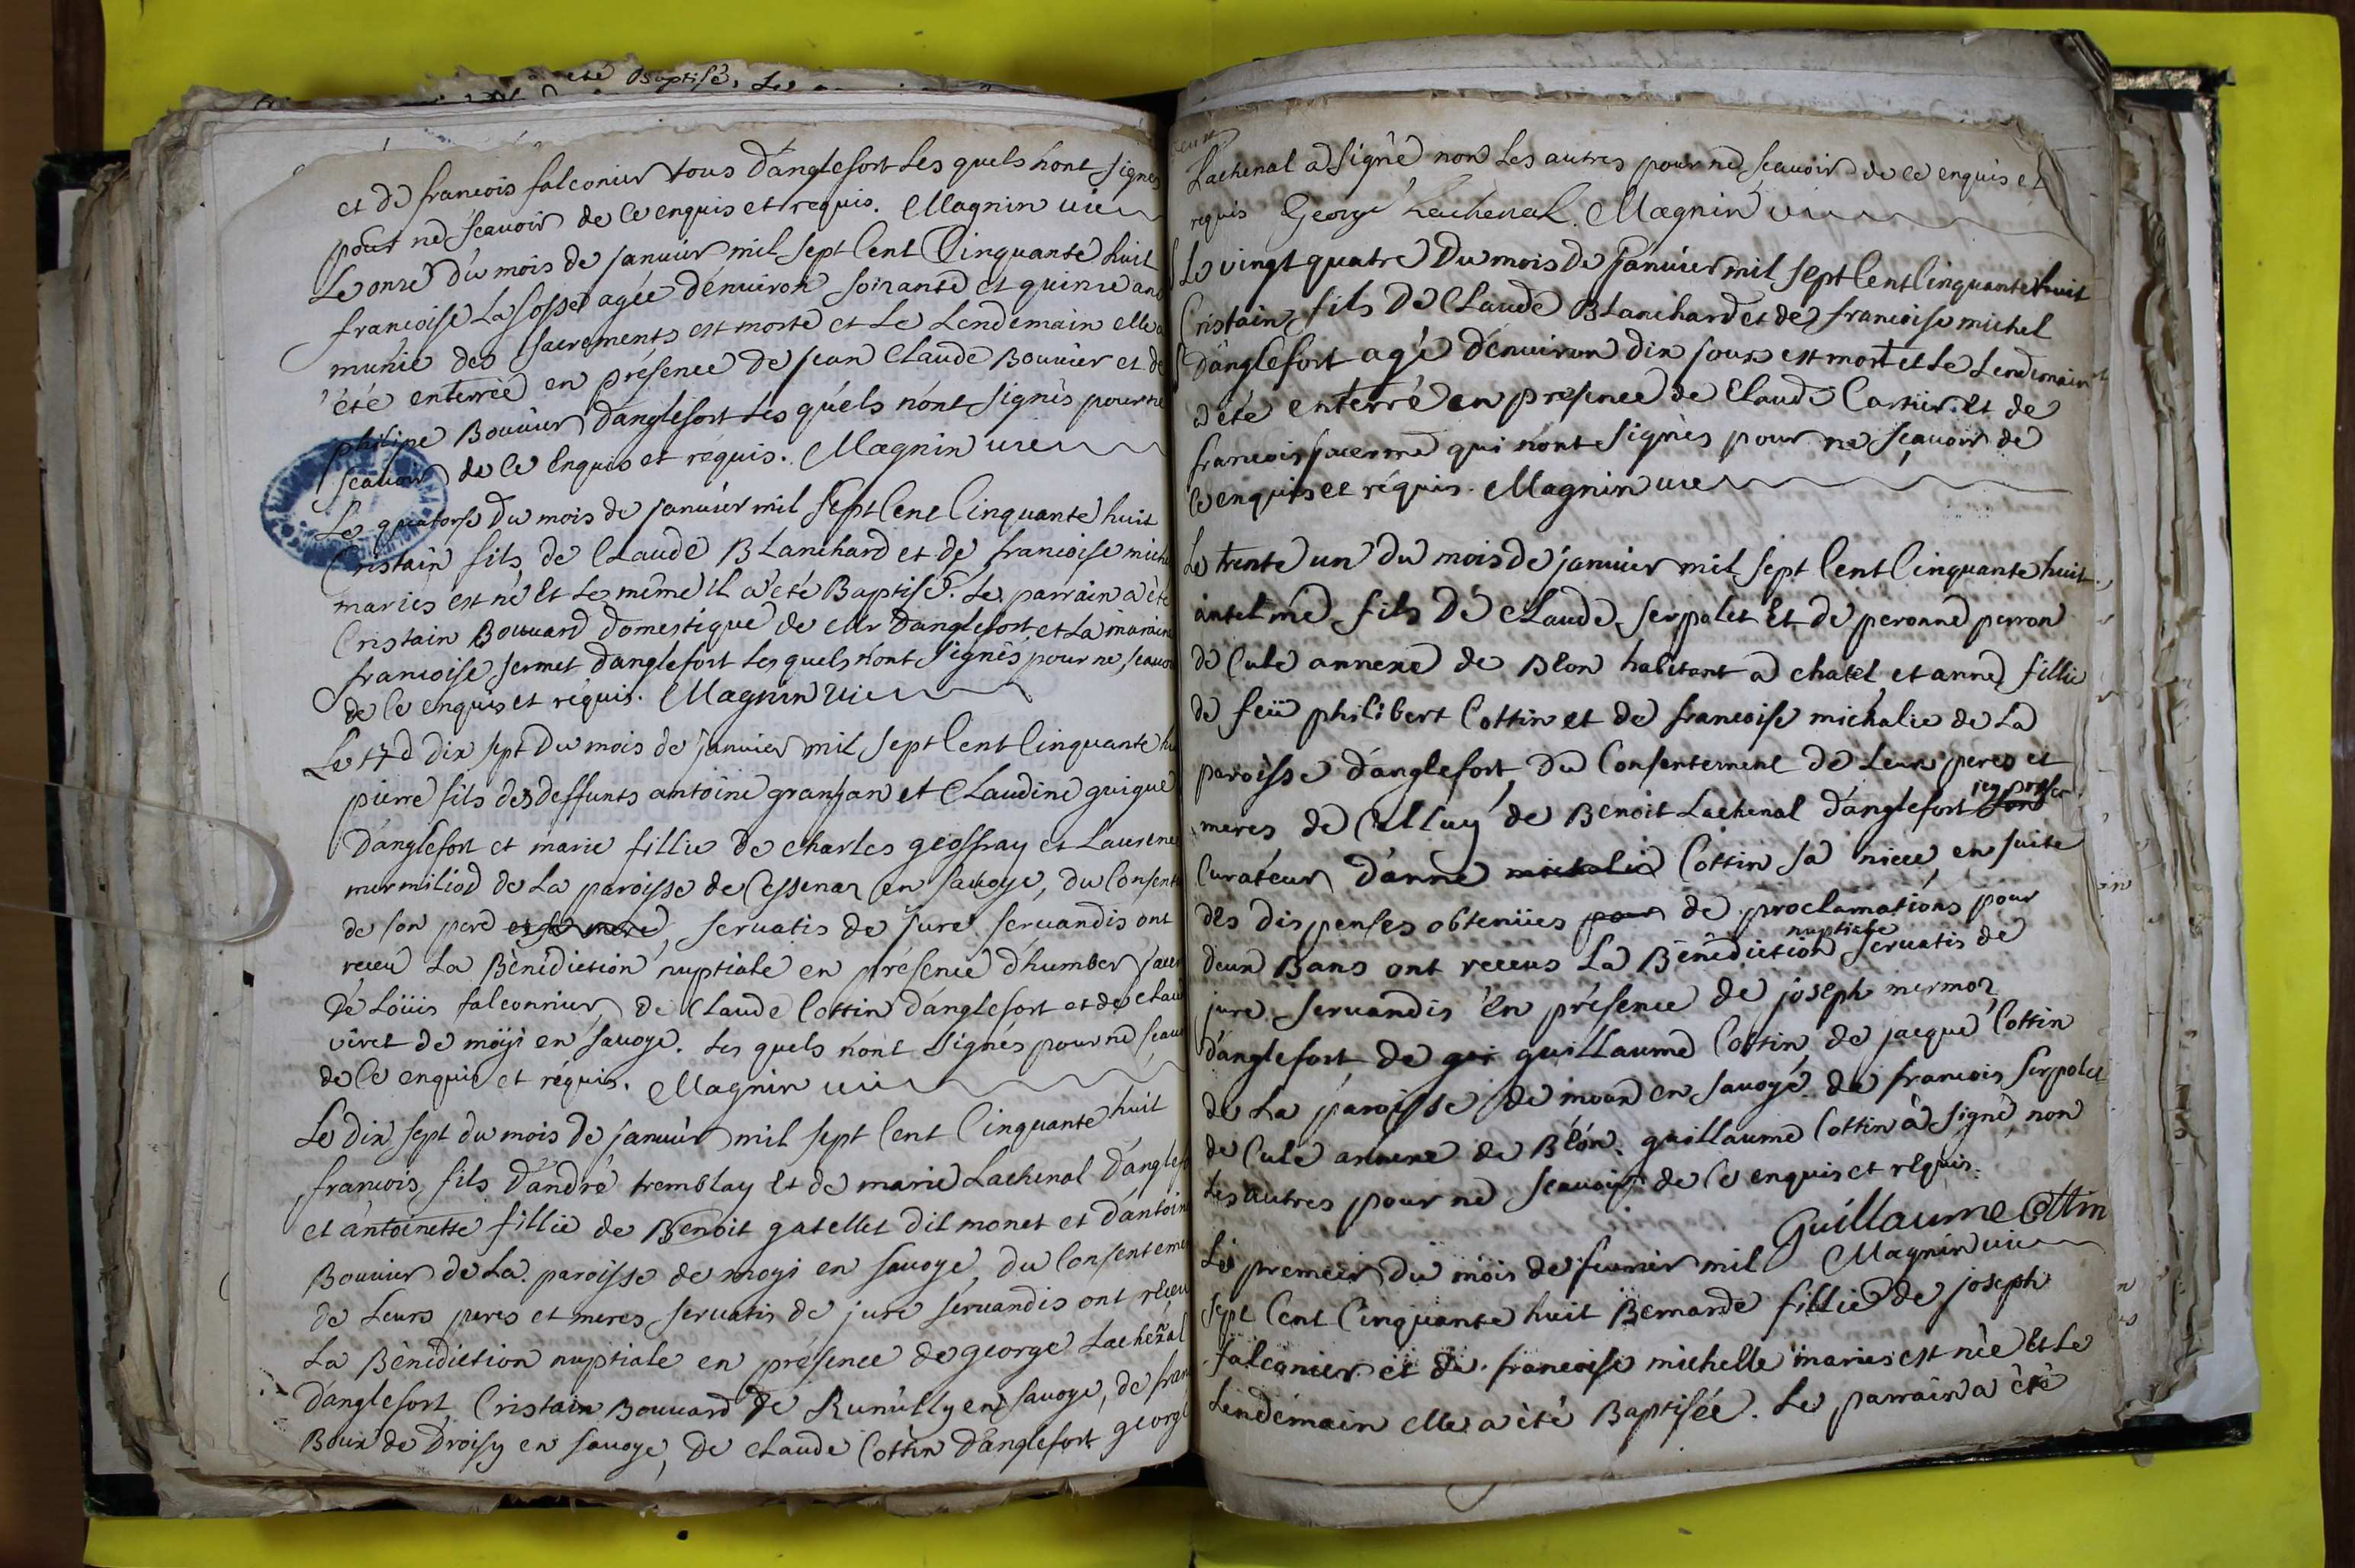 été Baptisé, Le
et de francois falconier tous d'anglefort Les quels n'ont signés
pour ne scavoir de ce enquis et requis. Magnin vic
Le onze du mois de janvier mil sept Cent Cinquante huit
francoise La fosse agée d'environ soixante et quinze ans
munie des sacrements est morte et Le Lendemain elle a
été enterrée en présence de jean Claude Bouvier et de
philipe Bouvier d'anglefort Les quels n'ont signés pour ne
scavoir de ce enquis et réquis. Magnin vic
Le quatorse du mois de janvier mil sept Cent Cinquante huit
Cristain fils de Claude Blanchard et de francoise miche
mariés est né et Le même il a été Baptisé. Le parrain a été
Cristain Bouvard domestique de d'anglefort et La maraine
francoise sermet d'anglefort Les quels n'ont signés pour ne scavoir
de ce enquis et réquis. Magnin vic
Le 17 d dix sept du mois de janvier mil sept Cent Cinquante hu
pierre fils des deffunts antoine granjan et Claudine guigue
d'anglefort et marie fillie de charles geoffray et Laurence
murmiliod de La paroisse de Cessenaz en savoye, du Consente
de son pere et sa mere, servatis de jure servandis ont
receu La Bénédiction nuptiale en présence d'humber
de Loüis falconnier, de Claude Cottin d'anglefort et de Clau
viret de moÿi en savoye. Les quels n'ont signés pour ne scavo
de ce enquis et réquis. Magnin vic
Le dix sept du mois de janvier mil sept Cent Cinquante huit
francois fils d'andré tremblay et de marie Lachenal d'anglef
et antoinette fillie de Benoit gatellet dit monet et d'antoin
Bouvier de La paroisse de moyi en savoye, du Consenteme
de Leurs peres et meres servatis de jure servandis ont receu
La Bénédiction nuptiale en présence de george Lachenal
d'anglefort Cristain Bouvard de Rumilly en savoye, de fran
Boux de Droisy en savoye, de Claude Cottin d'anglefort george
Lachenal a signé non Les autres pour ne scavoir de ce enquis et
requis George Lachenal. Magnin vic
Le vingt quatre du mois de janvier mil sept Cent Cinquante huit
Cristain fils de Claude Blanchard et de francoise michel
d'anglefort agé d'environ dix jours est mort et Le Lendemain
a été enterré en présence de Claude Cartier et de
francois qui n'ont signés pour ne scavoir de
ce enquis et réquis. Magnin vic
Le trente un du mois de janvier mil sept Cent Cinquante huit
antelme fils de Claude serpolet et de peronne perron
de Culé annexe de Blon habitant a chatel, et anne fillie
de feü philibert Cottin et de francoise michalie de La
paroisse d'anglefort, du Consentement de Leurs peres et
meres, de Celluy de Benoit Lachenal d'anglefort
Curateur d'anne michalie Cottin sa niece, en suite
des dispenses obtenües pour de proclamations pour
deux Bans ont receus La Bénédiction nuptiale servatis de
jure servandis en présence de joseph mermoz
d'anglefort, de gui guillaume Cottin, de jacque Cottin
de La paroisse de moan en savoye. de francois serpolet
de Culé annexe de Blon. guillaume Cottin a signé, non
Les autres pour ne scavoir de ce enquis et requis.
Guillaume Cottin
Le premier du mois de fevrier mil Magnin vic
sept Cent Cinquante huit Bernarde fillie de joseph
falconier et de francoise michelle mariés est née et Le
Lendemain elle a été Baptisée. Le parrain a été